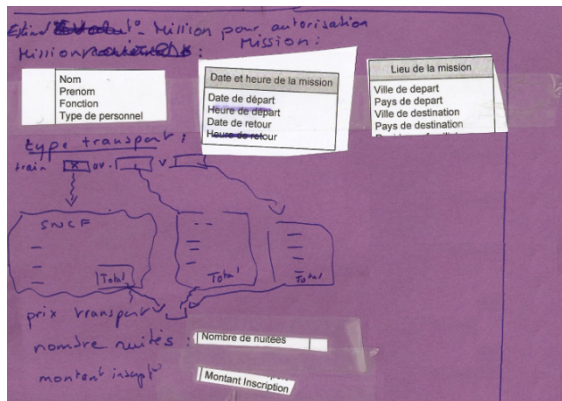 Mission pour autorisation
Mission : Mission :
Nom
Prenom
Fonction
Type de personnel
Date et heure de la mission
Date de départ
Heure de départ
Date de retour
Heure de retour
Lieu de la mission
Ville de depart
Pays de depart
Ville de destination
Pays de destination
type transport :
train X ou
SNCF
Total
Total
Total
prix transport
nombre nuités : Nombre de nuitées
montant Montant Inscription